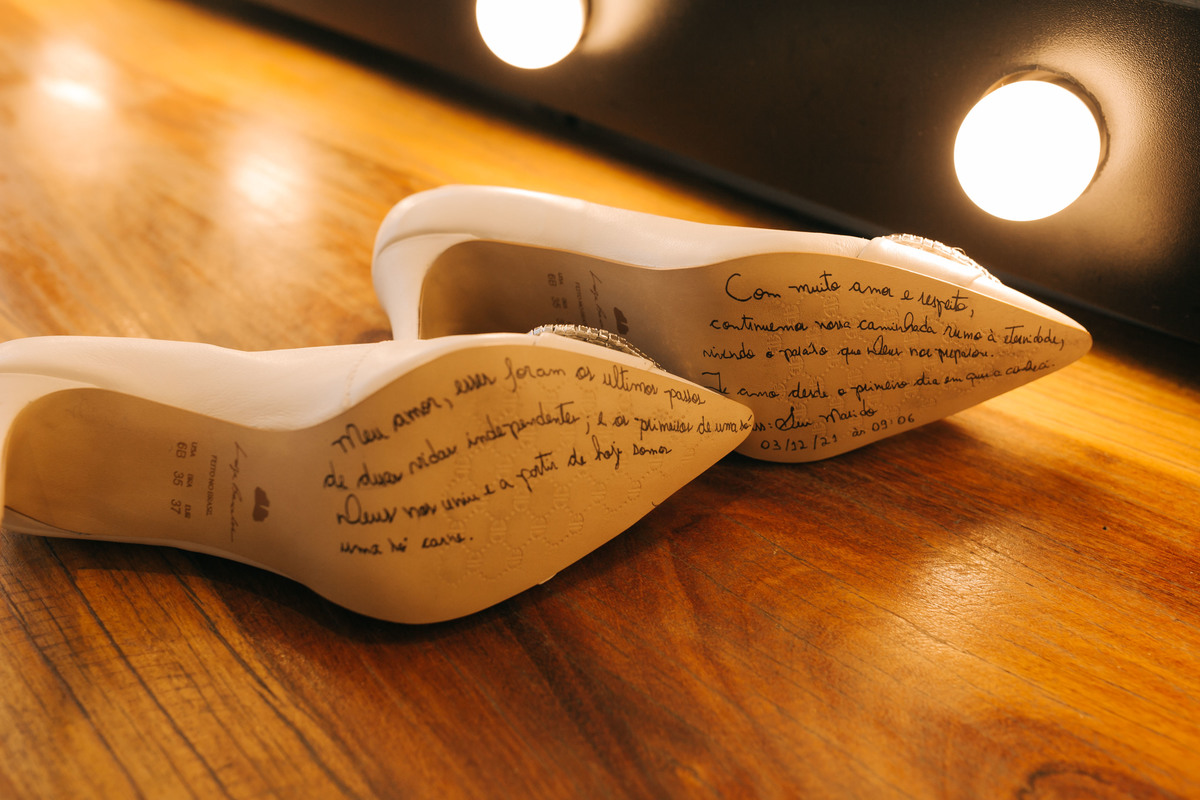 Meu amor, esses foram os ultimos passos
de duas vidas independentes; e os primeiros de uma só
Deus nos uniu e a partir de hoje somos
uma só carne.
FEITO NO BRASIL
USA BRA EUR
6B 35 37
Com muito amor e respeito,
continuemos nossa caminhada rumo à eternidade,
vivendo o paraíso que Deus nos preparou.
Te amo desde o primeiro dia em que a conheci.
Ass: Seu Marido
03/12/21 às 09:06